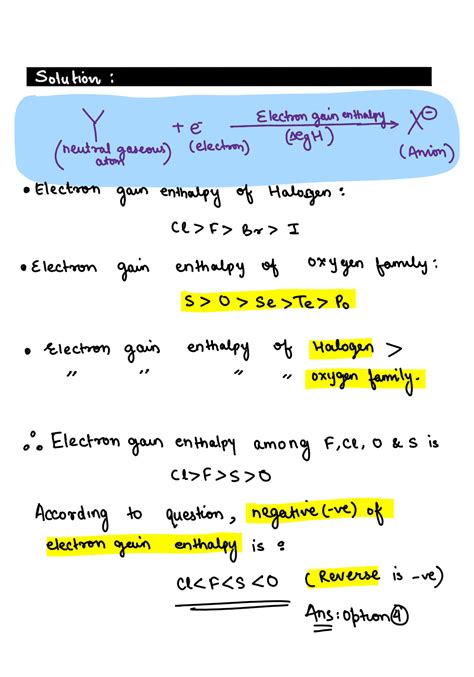 Solution :
Y + e⁻ Electron gain enthalpy (ΔegH) → X⊖
(neutral gaseous) atom (electron) (Anion)
• Electron gain enthalpy of Halogen :
Cl > F > Br > I
• Electron gain enthalpy of oxygen family :
S > O > Se > Te > Po
• Electron gain enthalpy of Halogen >
" " " " oxygen family.
∴ Electron gain enthalpy among F, Cl, O & S is
Cl > F > S > O
According to question, negative (-ve) of
electron gain enthalpy is :
Cl < F < S < O (Reverse is -ve)
Ans : option ④